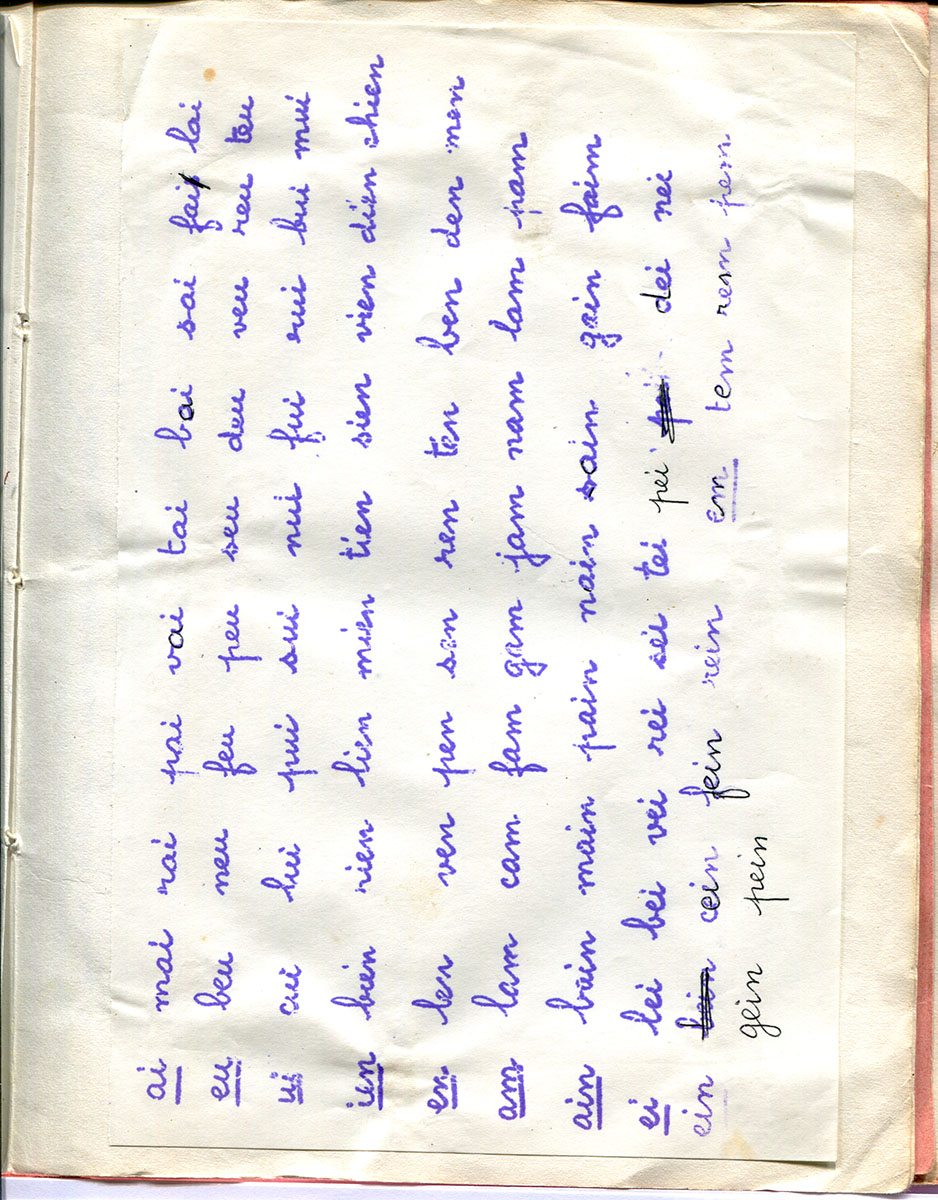 ai mai rai pai vai tai bai sai fai lai
eu beu neu feu peu seu deu veu reu teu
ui cui lui pui sui nui fui rui bui mui
ien bien rien lien mien tien sien vien dien chien
en len ven pen sen ren ten ben den men
am lam cam fam gam jam nam lam pam
ain bain main pain nain sain gain faim
ei lei bei vei rei sei tei pei dei nei
ein cein fein rein em tem rem pem
gein pein